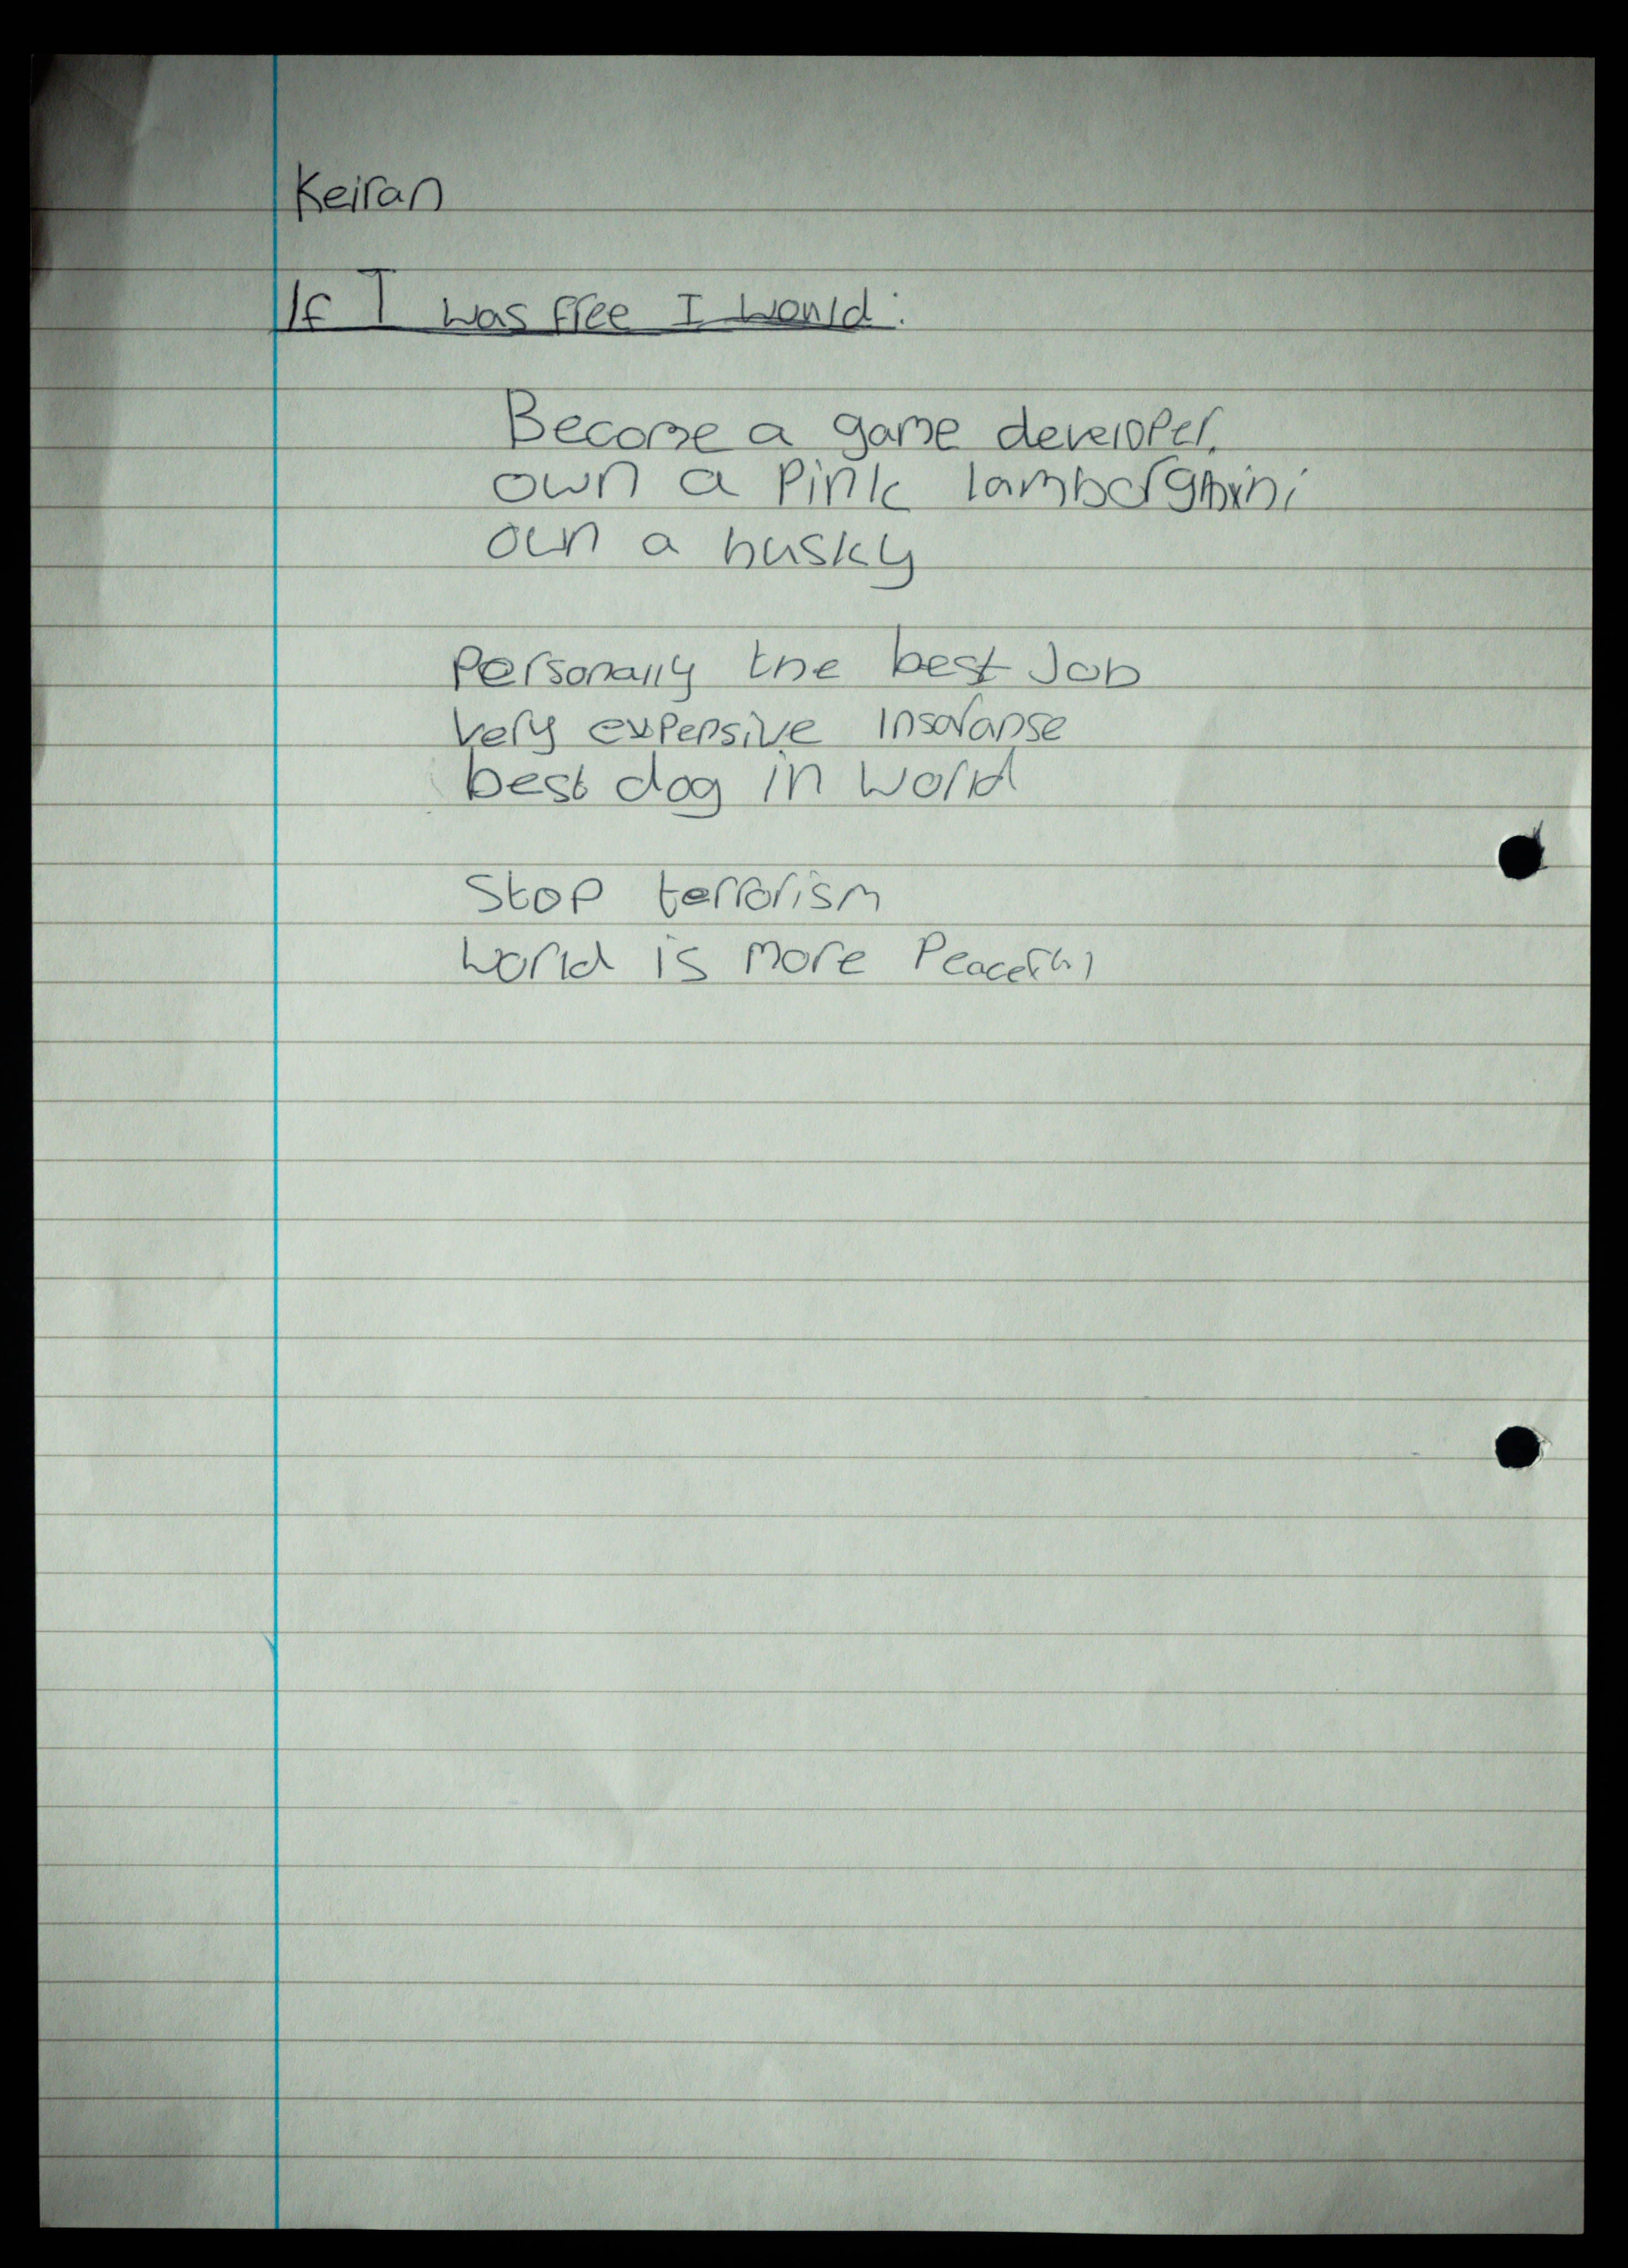 Keiran
If I was free I would:
Become a game developer.
own a pink lamborghini
own a husky
Personally the best Job
very expensive insoranse
best dog in world
Stop terrorism
world is more Peaceful